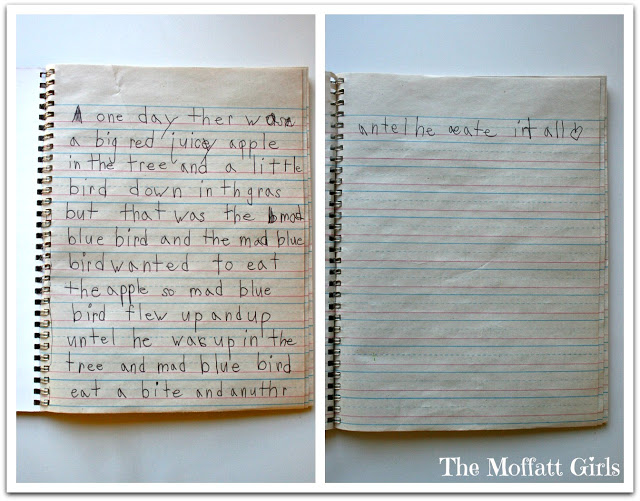 A one day ther was a
a big red juicy apple
in the tree and a little
bird down in th gras
but that was the mad
blue bird and the mad blue
bird wanted to eat
the apple so mad blue
bird flew up and up
untel he was up in the
tree and mad blue bird
eat a bite and anuthr
antel he eate it all
The Moffatt Girls